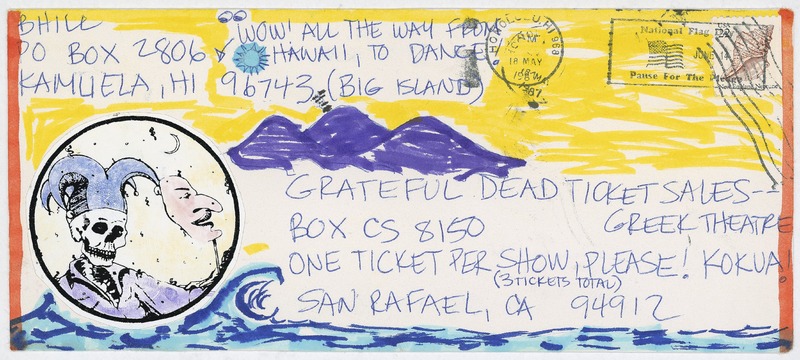 BHILL
PO BOX 2806
KAMUELA, HI 96743 (BIG ISLAND)
WOW! ALL THE WAY FROM
HAWAII, TO DANCE
HONOLULU, HI 968
18 MAY
1987
National Flag Day
JUNE 14
Pause For The Pledge
GRATEFUL DEAD TICKET SALES--
BOX CS 8150 GREEK THEATRE
ONE TICKET PER SHOW, PLEASE! KOKUA!
(3 TICKETS TOTAL)
SAN RAFAEL, CA 94912